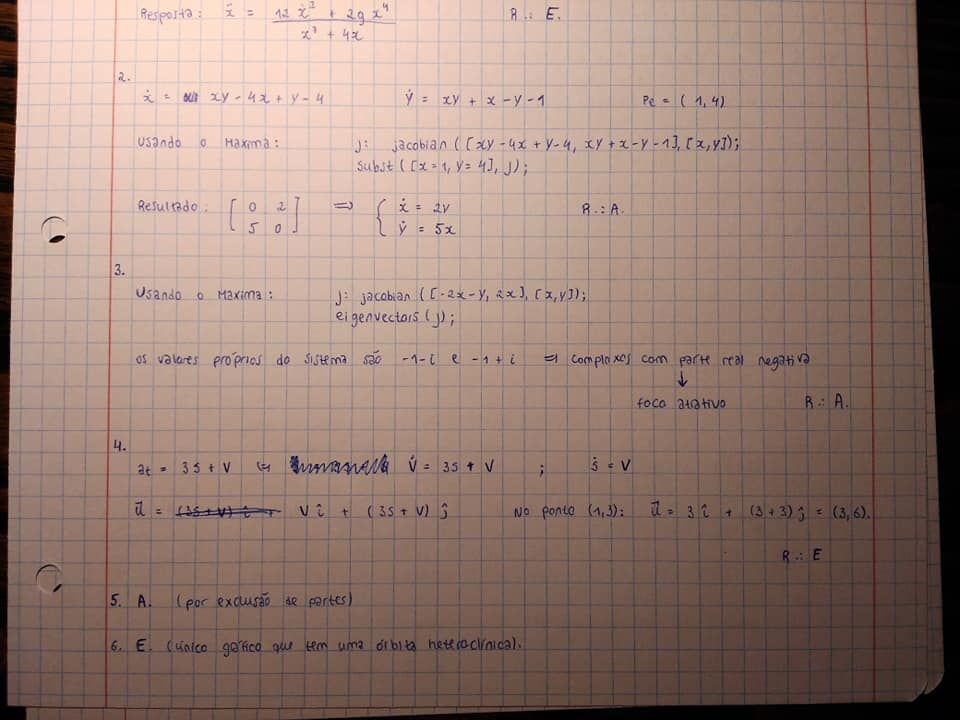 Resposta: ẍ = (12 ẋ² + 2g x⁴)/(x³ + 4x) R.: E.
2.
ẋ = xy - 4x + y - 4 ẏ = xy + x - y - 1 Pe = (1, 4)
Usando o Maxima: j: jacobian ([xy - 4x + y - 4, xy + x - y - 1], [x,y]);
subst ([x = 1, y = 4], j);
Resultado: [ 0 2 ; 5 0 ] ⇒ { ẋ = 2y R.: A.
ẏ = 5x
3.
Usando o Maxima: j: jacobian ([-2x - y, 2x], [x,y]);
eigenvectors (j);
os valores próprios do sistema são -1-i e -1+i ⇒ complexos com parte real negativa
↓
foco atrativo R.: A.
4.
at = 3s + v ⇔ v̇ = 3s + v ; ṡ = v
u⃗ = v î + (3s + v) ĵ No ponto (1,3): u⃗ = 3 î + (3 + 3) ĵ = (3, 6).
R.: E
5. A. (por exclusão de partes)
6. E. (único gráfico que tem uma órbita heteroclínica).